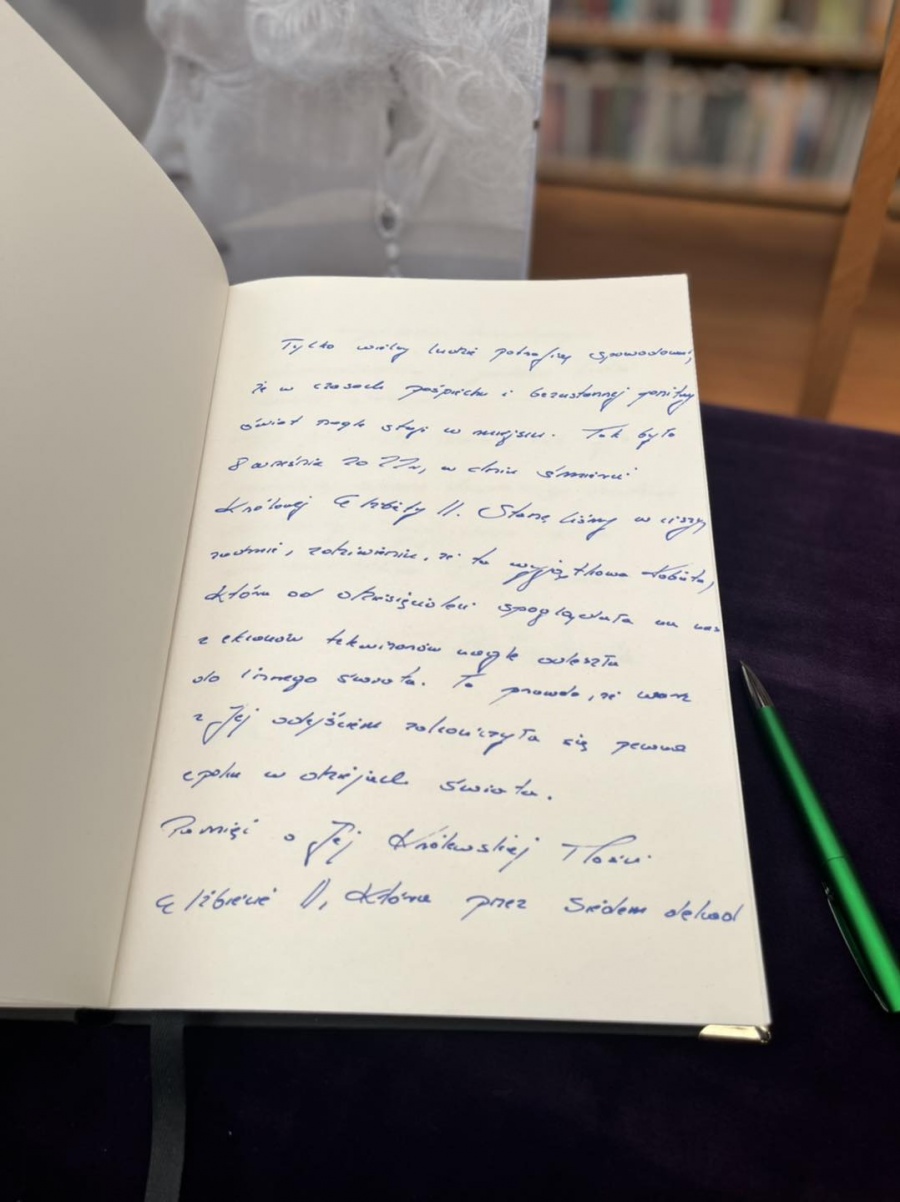 Tylko wielcy ludzie potrafią spowodować,
że w czasach pośpiechu i bezustannej gonitwy
świat nagle staje w miejscu. Tak było
8 września 2022r, w dniu śmierci
Królowej Elżbiety II. Stanęliśmy w ciszy
zadumie, zdziwieniu, że ta wyjątkowa kobieta,
która od dziesięcioleci spoglądała na nas
z ekranów telewizorów nagle odeszła
do innego świata. To prawda, że wraz
z Jej odejściem zakończyła się pewna
epoka w dziejach świata.
Pamięć o Jej Królewskiej Mości
Elżbiecie II, która przez siedem dekad